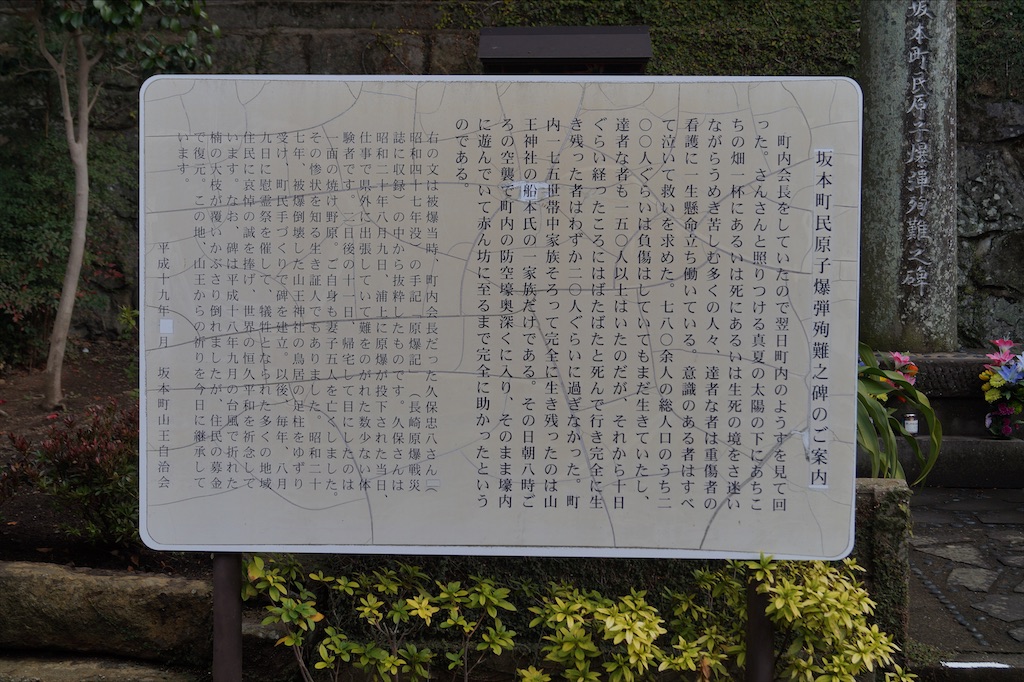 坂本町民原子爆彈殉難之碑
坂本町民原子爆弾殉難之碑のご案内
町内会長をしていたので翌日町内のようすを見て回
った。さんさんと照りつける真夏の太陽の下にあちこ
ちの畑一杯にあるいは死にあるいは生死の境をさ迷い
ながらうめき苦しむ多くの人々、達者な者は重傷者の
看護に一生懸命立ち働いている。意識のある者はすべ
て泣いて救いを求めた。七八〇余人の総人口のうち二
〇〇人ぐらいは負傷はしていてもまだ生きていたし、
達者な者も一五〇人以上はいたのだが、それから十日
ぐらい経ったころにはばたばたと死んで行き完全に生
き残った者はわずか二〇人ぐらいに過ぎなかった。町
内一七五世帯中家族そろって完全に生き残ったのは山
王神社の船本氏の一家族だけである。その日朝八時ご
ろの空襲で町内の防空壕奥深くに入り、そのまま壕内
に遊んでいて赤ん坊に至るまで完全に助かったという
のである。
右の文は被爆当時、町内会長だった久保忠八さん(
昭和四十七年没)の手記「原爆記」(長崎原爆戦災
誌に収録)の中から抜粋したものです。久保さんは
昭和二十年八月九日、浦上に原爆が投下された当日、
仕事で県外に出張していて難をのがれた数少ない体
験者です。二日後の十一日、帰宅して目にしたのは
一面の焼け野原。ご自身も妻子五人を亡くしました。
その惨状を知る生き証人でもありました。昭和二十
七年、被爆倒壊した山王神社の鳥居の足柱をゆずり
受け、町民手づくりで碑を建立。以後、毎年、八月
九日に慰霊祭を催して、犠牲となられた多くの地域
住民に哀悼の誠を捧げ、世界の恒久平和を祈念して
います。なお、碑は平成十八年九月の台風で折れた
楠の大枝が覆いかぶさり倒れましたが、住民の募金
で復元。この地、山王からの祈りを今日に継承して
います。
平成十九年 月 坂本町山王自治会